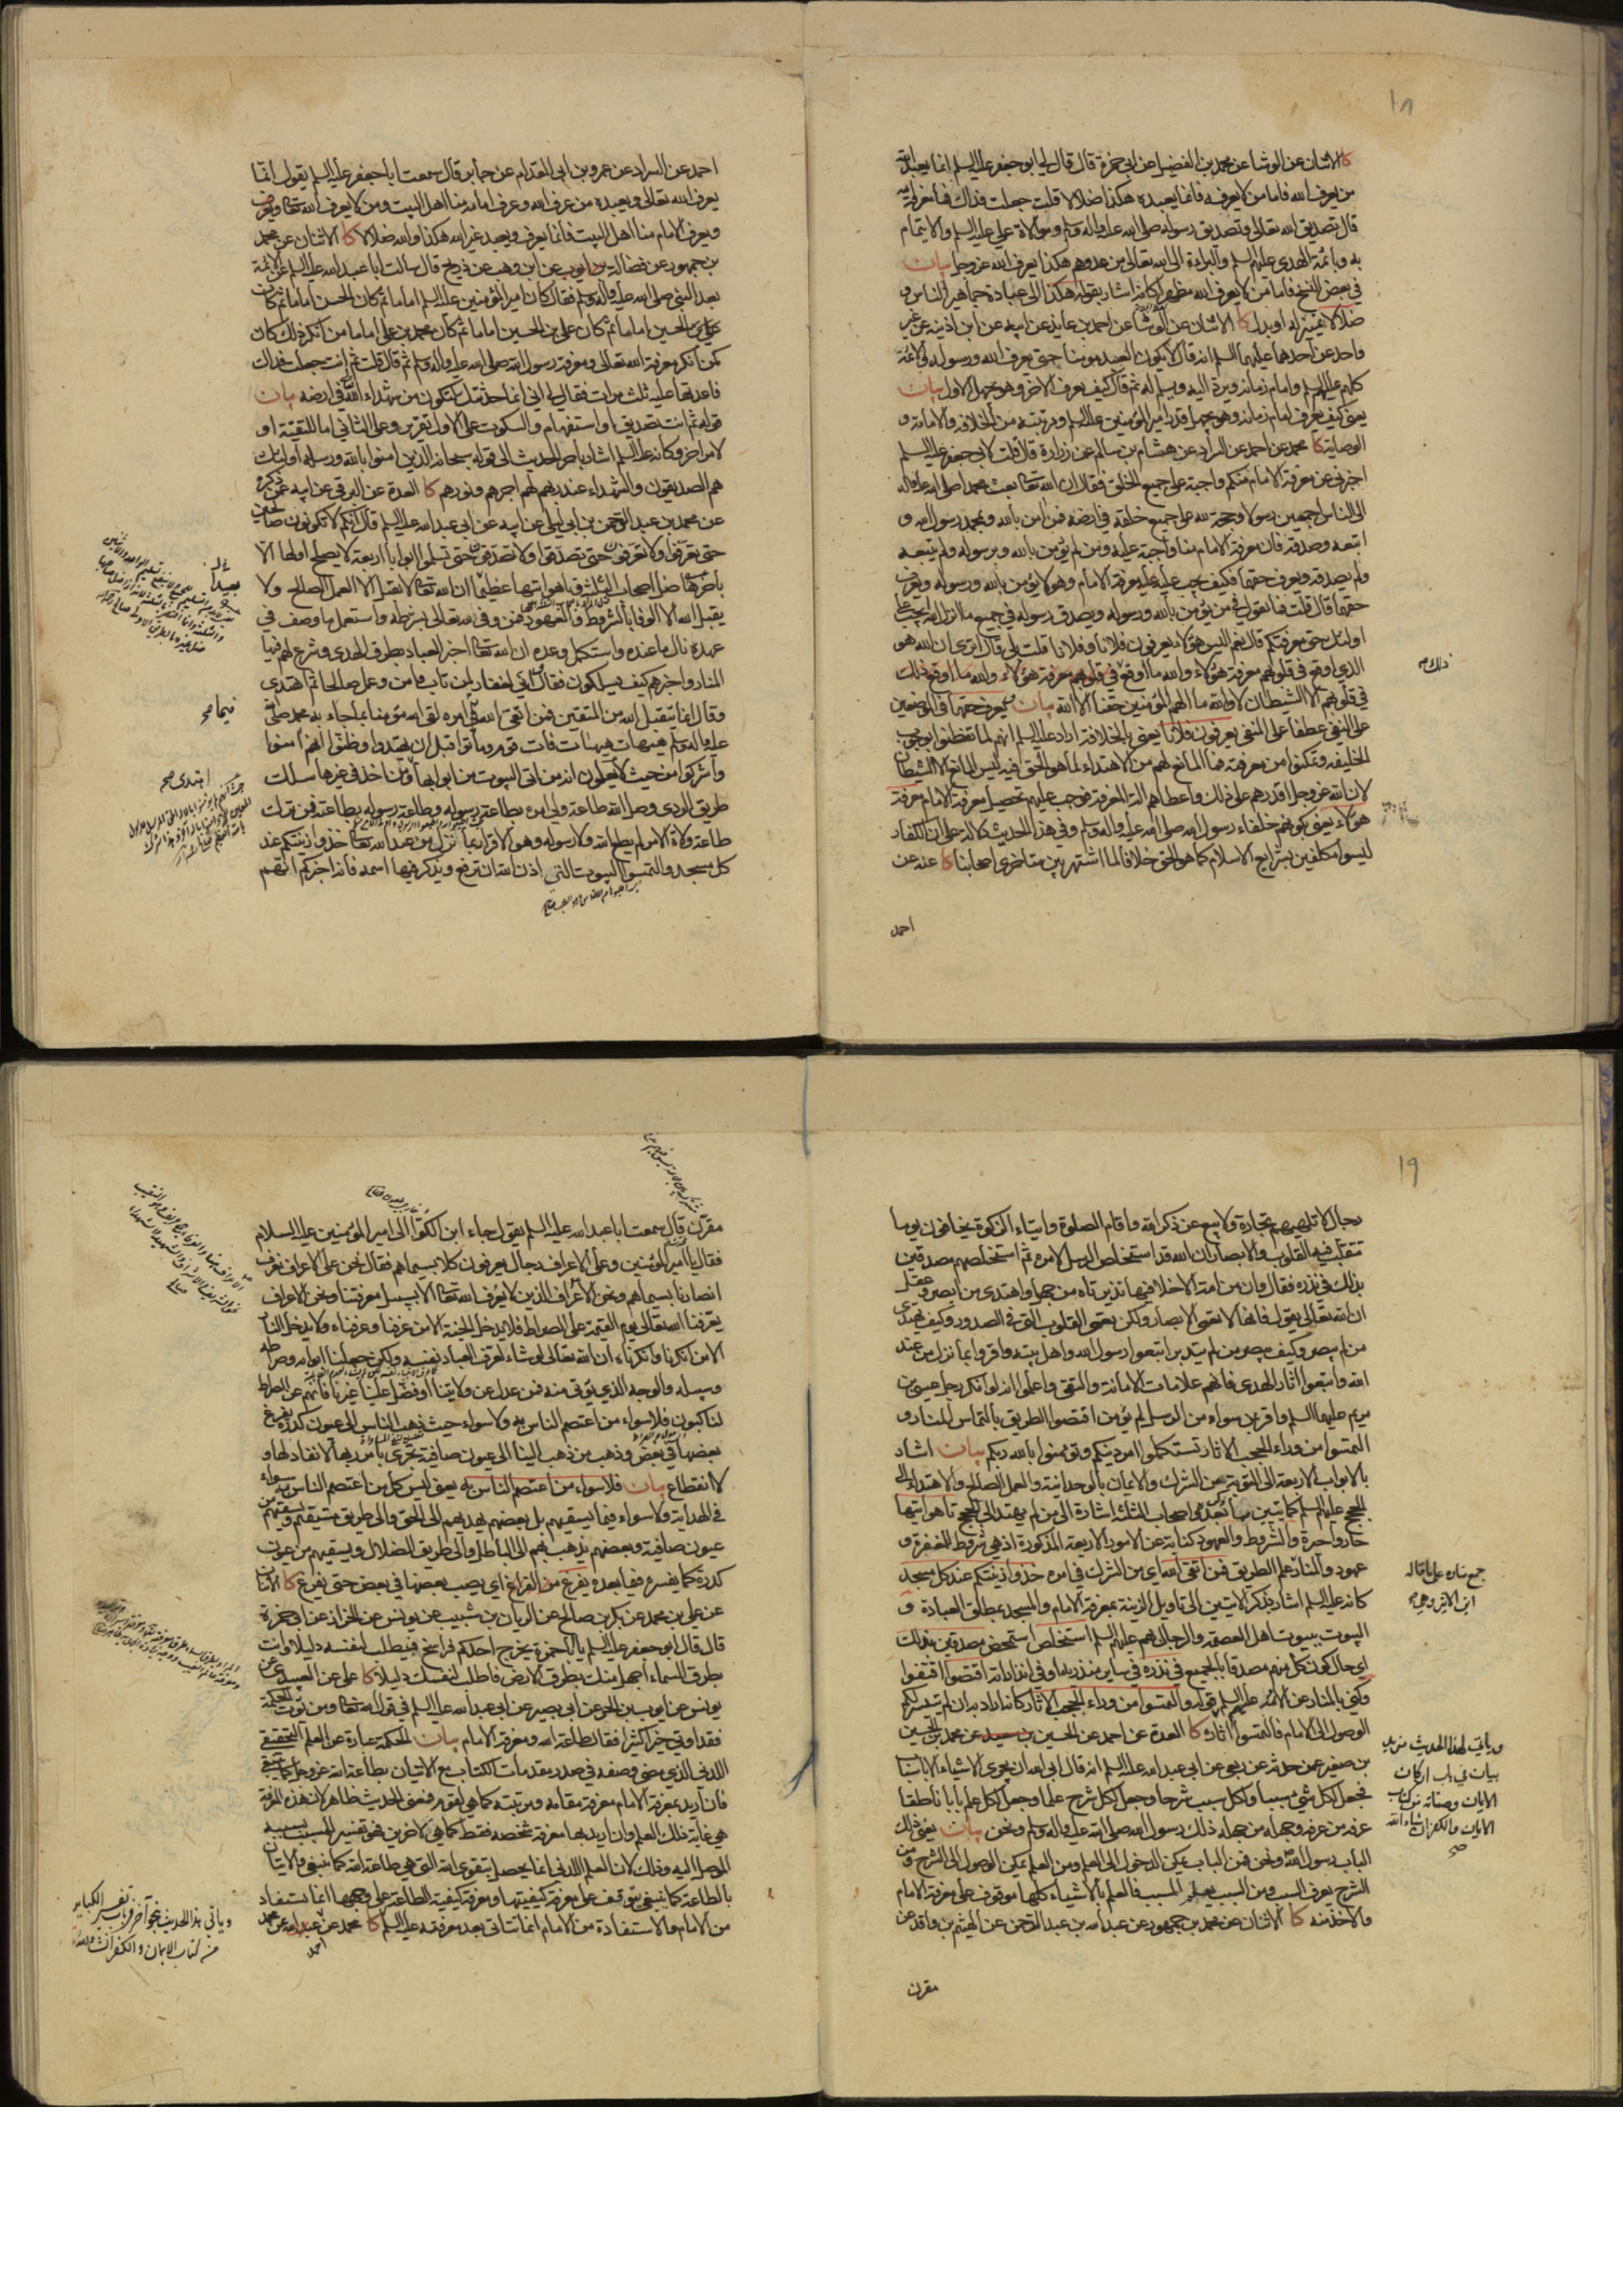 ١٨
كا الاثنان عن الوشا عن محمد بن الفضيل عن ابي حمزة قال قال لي ابو جعفر عليه السلم انما يعبد الله
من يعرف الله فاما من لا يعرف الله فانما يعبده هكذا ضلالا قلت جعلت فداك فما معرفة الله
قال تصديق الله تعالى وتصديق رسوله صلى الله عليه واله وسلم وموالاة علي عليه السلم والايتمام
به وبائمة الهدى عليهم السلم والبراءة الى الله تعالى من عدوهم هكذا يعرف الله عز وجل بيان
في بعض النسخ فاما من لا يعرف الله كانه اشار بقوله هكذا الى عبادة جماهير الناس و
ضلالا تمييز له او بدل كا الاثنان عن الوشا عن احمد بن عايذ عن ابيه عن ابن اذينة عن غير
واحد عن احدهما عليهما السلم انه قال لا يكون العبد مومنا حتى يعرف الله ورسوله والائمة
كلهم عليهم السلم وامام زمانه ويرد اليه ويسلم له ثم قال كيف يعرف الاخر وهو يجهل الاول بيان
يعني كيف يعرف امام زمانه وهو يجهل قدر امير المؤمنين عليه السلم ومرتبته من الخلافة والامامة و
الوصاية كا محمد عن احمد عن السراد عن هشام بن سالم عن زرارة قال قلت لابي جعفر عليه السلم
اخبرني عن معرفة الامام منكم واجبة على جميع الخلق فقال ان الله تعالى بعث محمدا صلى الله عليه واله
الى الناس اجمعين رسولا وحجة لله على جميع خلقه في ارضه فمن امن بالله وبمحمد رسول الله و
اتبعه وصدقه فان معرفة الامام منا واجبة عليه ومن لم يؤمن بالله وبرسوله ولم يتبعه
ولم يصدقه ويعرف حقهما فكيف يجب عليه معرفة الامام وهو لا يؤمن بالله ورسوله ويعرف
حقهما قال قلت فما تقول في من يؤمن بالله ورسوله ويصدق رسوله في جميع ما انزل الله يجب على
اولئك حق معرفتكم قال نعم اليس هؤلاء يعرفون فلانا وفلانا قلت بلى قال اترى ان الله هو
الذي اوقع في قلوبهم معرفة هؤلاء والله ما اوقع في قلوبهم معرفة هؤلاء والله ما اوقع ذلك
في قلوبهم الا الشيطان لا والله ما الهم المؤمنين حقنا الا الله بيان ويعرف حقهما في الموضعين
على النفي عطفا على المنفي يعرفون فلانا يعني بالخلافة اراد عليه السلم انهم لما تفطنوا بوجوب
الخليفة وتمكنوا من معرفته فما المانع لهم من الاهتداء لما هو الحق فيه ليس المانع الا الشيطان
لان الله عز وجل اقدرهم على ذلك واعطاهم الة المعرفة فوجب عليهم تحصيل معرفة الامام معرفة
هؤلاء يعني بكونهم خلفاء رسول الله صلى الله عليه واله وسلم وفي هذا الحديث دلالة على ان الكفار
ليسوا مكلفين بشرايع الاسلام كما هو الحق خلافا لما اشتهر بين متاخري اصحابنا كا عنه عن
احمد
ذلك صح
احمد عن السراد عن عمرو بن ابي المقدام عن جابر قال سمعت ابا جعفر عليه السلم يقول انما
يعرف الله تعالى ويعبده من عرف الله وعرف امامه منا اهل البيت ومن لا يعرف الله تعالى ويعرف
ويعرف الامام منا اهل البيت فانما يعرف ويعبد غير الله هكذا والله ضلالا كا الاثنان عن محمد
بن جمهور عن فضالة بن ايوب عن ابن وهب عن ذريح قال سالت ابا عبد الله عليه السلم عن الائمة
بعد النبي صلى الله عليه واله وسلم فقال كان امير المؤمنين عليه السلم اماما ثم كان الحسن اماما ثم كان
الحسين اماما ثم كان علي بن الحسين اماما ثم كان محمد بن علي اماما من انكر ذلك كان
كمن انكر معرفة الله تعالى ومعرفة رسول الله صلى الله عليه واله وسلم ثم قال قلت ثم انت جعلت فداك
فاعدتها عليه ثلث مرات فقال لي اني انما حدثتك لتكون من شهداء الله في ارضه بيان
قوله ثم انت تصديق او استفهام والسكوت على الاول تقرير وعلى الثاني اما للتقية او
لامر اخر وكانه عليه السلم اشار باخر الحديث الى قوله سبحانه الذين امنوا بالله ورسله اولئك
هم الصديقون والشهداء عند ربهم لهم اجرهم ونورهم كا العدة عن البرقي عن ابيه عمن ذكره
عن محمد بن عبد الرحمن بن ابي ليلى عن ابيه عن ابي عبد الله عليه السلم قال انكم لا تكونون صالحين
حتى تعرفوا ولا تعرفون حتى تصدقوا ولا تصدقون حتى تسلموا ابوابا اربعة لا يصلح اولها الا
باخرها ضل اصحاب الثلثة وتاهوا تيها عظيما ان الله تعالى لا يقبل الا العمل الصالح ولا
يقبل الله الا الوفا بالشروط والعهود فمن وفى لله تعالى بشرطه واستعمل ما وصف في
عهده نال ما عنده واستكمل وعده ان الله تعالى اخبر العباد بطرق الهدى وشرع لهم فيها
المنار واخبرهم كيف يسلكون فقال اني لغفار لمن تاب وامن وعمل صالحا ثم اهتدى
وقال انما يتقبل الله من المتقين فمن اتقى الله في امره لقى الله مؤمنا بما جاء به محمد صلى الله
عليه واله وسلم هيهات هيهات فات قوم وماتوا قبل ان يهتدوا وظنوا انهم امنوا
واشركوا من حيث لا يعلمون انه من اتى البيوت من ابوابها ومن اخذ في غيرها سلك
طريق الردى وصل الله طاعة ولي امره بطاعة رسوله وطاعة رسوله بطاعته فمن ترك
طاعة ولاة الامر لم يطع الله ولا رسوله وهو الاقرار بما نزل من عند الله تعالى خذوا زينتكم عند
كل مسجد والتمسوا البيوت التي اذن الله ان ترفع ويذكر فيها اسمه فانه اخبركم انهم
فيما صح
اهتدى صح
١٩
رجال لا تلهيهم تجارة ولا بيع عن ذكر الله واقام الصلوة وايتاء الزكوة يخافون يوما
تتقلب فيه القلوب والابصار ان الله قد استخلص الرسل لامره ثم استخلصهم مصدقين
بذلك في نذره فقال وان من امة الا خلا فيها نذير تاه من جهل واهتدى من ابصر وعقل
ان الله تعالى يقول فانها لا تعمى الابصار ولكن تعمى القلوب التي في الصدور وكيف يهتدي
من لم يبصر وكيف يبصر من لم يتدبر اتبعوا رسول الله واهل بيته واقروا بما نزل من عند
الله واتبعوا اثار الهدى فانهم علامات الامانة والتقى واعلموا انه لو انكر رجل عيسى بن
مريم عليهما السلم واقر بمن سواه من الرسل لم يؤمن اقتصوا الطريق بالتماس المنار و
التمسوا من وراء الحجب الاثار تستكملوا امر دينكم وتؤمنوا بالله ربكم بيان اشار
بالابواب الاربعة الى التوبة عن الشرك والايمان بالوحدانية والعمل الصالح والاهتداء الى
الحجج عليهم السلم كما يتبين مما بعد واصحاب الثلثة اشارة الى من لم يهتد الى الحجج تاهوا تيها
حاروا حيرة والشروط والعهود كناية عن الامور الاربعة المذكورة اذ هي شروط للمغفرة و
عهود والمنار علم الطريق فمن اتقى الله اي من الشرك في امره خذوا زينتكم عند كل مسجد
كانه عليه السلم اشار بذكر الايتين الى تاويل الزينة بمعرفة الامام والمسجد بمطلق العبادة و
البيوت ببيوت اهل العصمة والرجال بهم عليهم السلم استخلص استخص مصدقين بذلك
اي حال كون كل منهم مصدقا بالجميع في نذره في ساير منذريه او في انذاراته اقتصوا اقتفوا
وكنى بالمنار عن الائمة عليهم السلم بقوله والتمسوا من وراء الحجب الاثار كانه اراد به ان لم يتيسر لكم
الوصول الى الامام فالتمسوا اثاره كا العدة عن احمد عن الحسين بن سعيد عن محمد بن الحسين
بن صغير عمن حدثه عن ربعي عن ابي عبد الله عليه السلم انه قال ابى الله ان يجري الاشياء الا باسباب
فجعل لكل شيء سببا ولكل سبب شرحا وجعل لكل شرح علما وجعل لكل علم بابا ناطقا
عرفه من عرفه وجهله من جهله ذلك رسول الله صلى الله عليه واله وسلم ونحن بيان يعني ذلك
الباب رسول الله ونحن فمن الباب يمكن الدخول الى العلم ومن العلم يمكن الوصول الى الشرح ومن
الشرح يعرف السبب ومن السبب يعلم المسبب فالعلم بالاشياء كلها موقوف على معرفة الامام
والاخذ منه كا الاثنان عن محمد بن جمهور عن عبد الله بن عبد الرحمن عن الهيثم بن واقد عن
مقرن
جمع مناره على ما قاله
ابن الاثير وهي
وياتي لهذا الحديث مزيد
بيان في باب اركان
الايمان وصفاته من كتاب
الايمان والكفر ان شاء الله
صح
مقرن قال سمعت ابا عبد الله عليه السلم يقول جاء ابن الكوا الى امير المؤمنين عليه السلام
فقال يا امير المؤمنين وعلى الاعراف رجال يعرفون كلا بسيماهم فقال نحن على الاعراف نعرف
انصارنا بسيماهم ونحن الاعراف الذين لا يعرف الله تعالى الا بسبيل معرفتنا ونحن الاعراف
يعرفنا الله تعالى يوم القيمة على الصراط فلا يدخل الجنة الا من عرفنا وعرفناه ولا يدخل النار
الا من انكرنا وانكرناه ان الله تعالى لو شاء لعرف العباد نفسه ولكن جعلنا ابوابه وصراطه
وسبيله والوجه الذي يؤتى منه فمن عدل عن ولايتنا او فضل علينا غيرنا فانهم عن الصراط
لناكبون فلا سواء من اعتصم الناس به ولا سواء حيث ذهب الناس الى عيون كدرة يفرغ
بعضها في بعض وذهب من ذهب الينا الى عيون صافية تجري بامر ربها لا نفاد لها و
لا انقطاع بيان فلا سواء من اعتصم الناس به يعني ليس كل من اعتصم الناس به سواء
في الهداية ولا سواء فيما يسقيهم بل بعضهم يهديهم الى الحق والى طريق مستقيم ويسقيهم من
عيون صافية وبعضهم يذهب بهم الى الباطل والى طريق الضلال ويسقيهم من عيون
كدرة كما يفسره فيما بعده يفرغ من الفراغ اي يصب بعضها في بعض حتى يفرغ كا الاثنان
عن علي بن محمد عن بكر بن صالح عن الريان بن شبيب عن يونس عن الخزاز عن ابي حمزة
قال قال ابو جعفر عليه السلم يا با حمزة يخرج احدكم فراسخ فيطلب لنفسه دليلا وانت
بطرق السماء اجهل منك بطرق الارض فاطلب لنفسك دليلا كا علي عن العبيدي عن
يونس عن ايوب بن الحر عن ابي بصير عن ابي عبد الله عليه السلم في قول الله تعالى ومن يؤت الحكمة
فقد اوتي خيرا كثيرا فقال طاعة الله ومعرفة الامام بيان الحكمة عبارة عن العلم التحقيقي
اللدني الذي مضى وصفه في صدر مقدمات الكتاب مع الاتيان بطاعة الله عز وجل كما ينبغي
فان اريد بمعرفة الامام معرفة مقامه ومرتبته كما هي لقوم فمعنى الحديث ظاهر لان هذه المعرفة
هي غاية ذلك العلم وان اريد بها معرفة شخصه فقط كما هي لاخرين فهو تفسير للمسبب بسببه
الموصل اليه وذلك لان العلم اللدني انما يحصل بتقوى الله التي هي طاعة الله كما ينبغي والاتيان
بالطاعة كما ينبغي يتوقف على معرفة كيفيتها ومعرفة كيفية الطاعة على وجهها انما تستفاد
من الامام والاستفادة من الامام انما تتاتى بعد معرفته عليه السلم كا محمد عن عبد الله عن محمد
احمد
وياتي هذا الحديث بنحو آخر في باب تفسير الكباير
من كتاب الايمان والكفر ان شاء الله